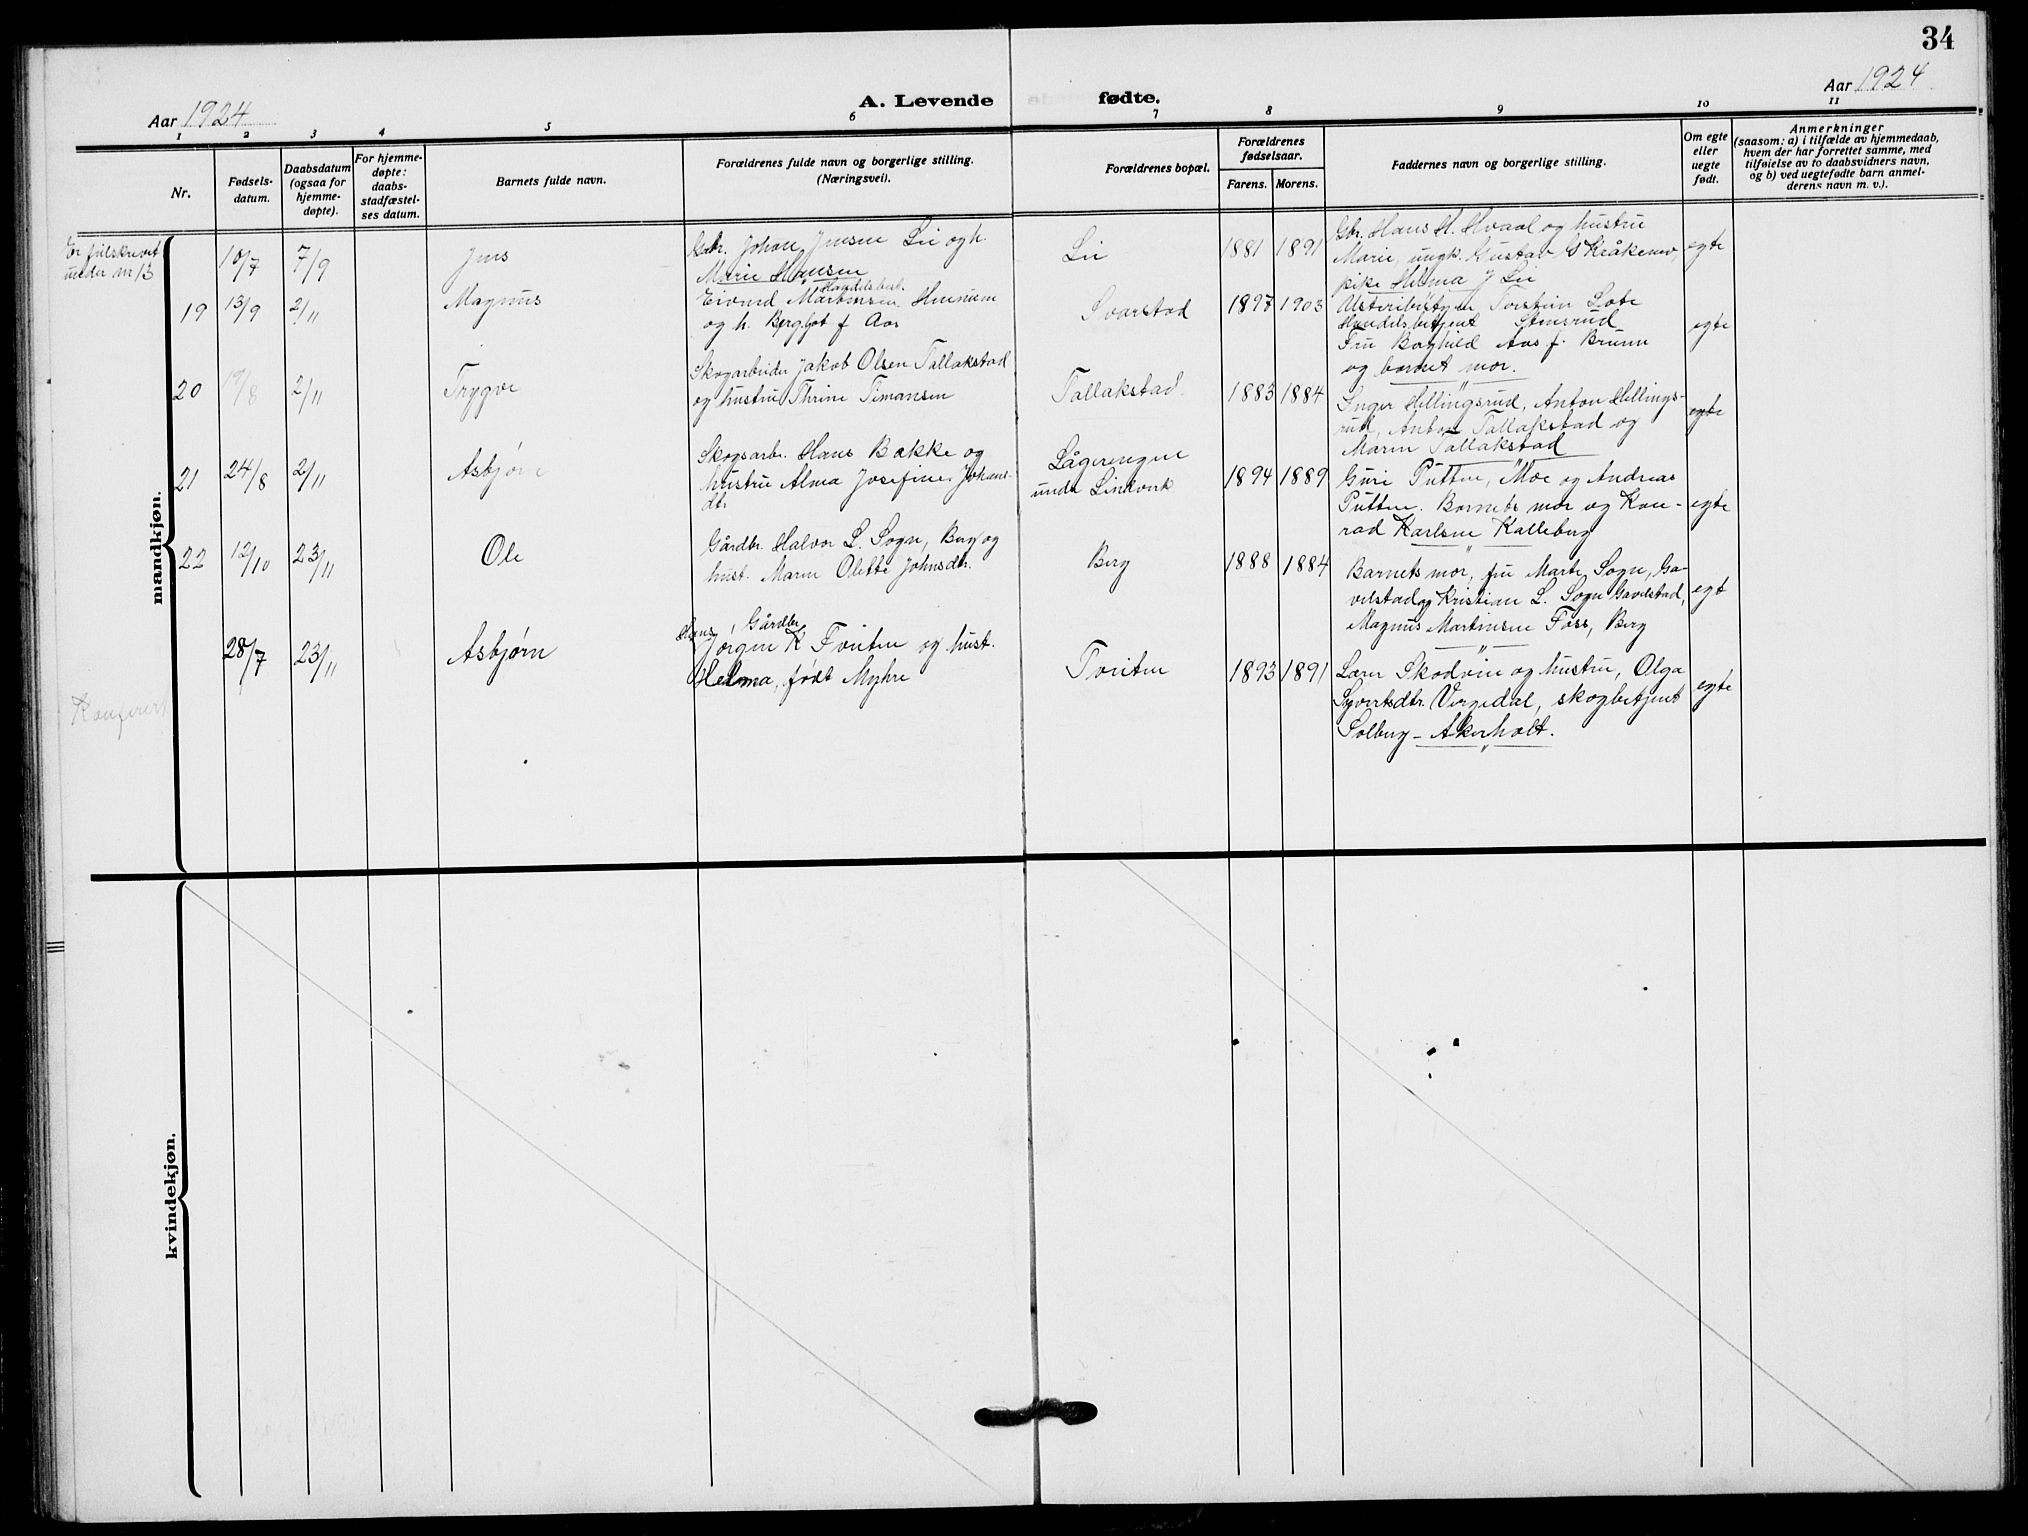 34
Aar 1924
A. Levende fødte.
Aar 1924
1 2 3 4 5 6 7 8 9 10 11
Nr.
Fødsels-
datum.
Daabsdatum
(ogsaa for
hjemme-
døpte).
For hjemme-
døpte:
daabs-
stadfæstel-
ses datum.
Barnets fulde navn.
Forældrenes fulde navn og borgerlige stilling.
(Næringsvei).
Forældrenes bopæl.
Forældrenes
fødselsaar.
Farens. Morens.
Faddernes navn og borgerlige stilling.
Om egte
eller
uegte
født.
Anmerkninger
(saasom: a) i tilfælde av hjemmedaab,
hvem der har forrettet samme, med
tilføielse av to daabsvidners navn,
og b) ved uegtefødte barn anmel-
derens navn m. v.).
mandkjøn.
Er feilskrevet
under nr 13
10/7 7/9 Jens
Gbr. Johan Jensen Lie og h.
Marie Hansen
Lie 1881 1891
Gbr. Hans H. Hvaal og hustru
Marie, ungk. Gustav G Kråkemo,
pike Helma J Lie
egte
19 13/9 2/11 Magnus
Handelsbest.
Eivind Martinsen
og h. Bergljot f Aas
Svarstad 1897 1903
Torstein Lobe
Handelsbetjent Stensrud
Fru Borghild Aas f. Bruun
og barnet mor.
egte
20 19/8 2/11 Trygve
Skogarbeider Jakob Olsen Tallakstad
og hustru Thrine Timansen
Tallakstad 1883 1884
Inger Hillingsrud, Anton Hillings-
rud, Anton Tallakstad og
Maren Tallakstad
egte
21 24/8 2/11 Asbjørn
Skogsarb. Hans Bække og
hustru Alma Josefine Johans-
dtr
Lågerengen
under Lindverk
1894 1889
Guri Putten, Moe og Andreas
Putten. Barnets mor og Kon-
rad Karlsen Kalleberg
egte
22 12/10 23/11 Ole
Gårdbr. Halvor L. Sogn, Berg og
hust. Maren Olette Johnsdtr.
Berg 1888 1884
Barnets mor, fru Marte Sogn, Ga-
velstad og Kristian L. Sogn Gavelstad,
Magnus Martinsen Foss, Berg
egt
28/7 23/11 Asbjørn
Hans, Gårdbr
Jørgen K Tveiten og hust.
Helma, født Myhre
Tveiten 1893 1891
Lærer Skodvin og hustru, Olga
Syvertsdtr. Vergedal, skogbetjent
Solberg – Akerholt.
egte
kvindekjøn.